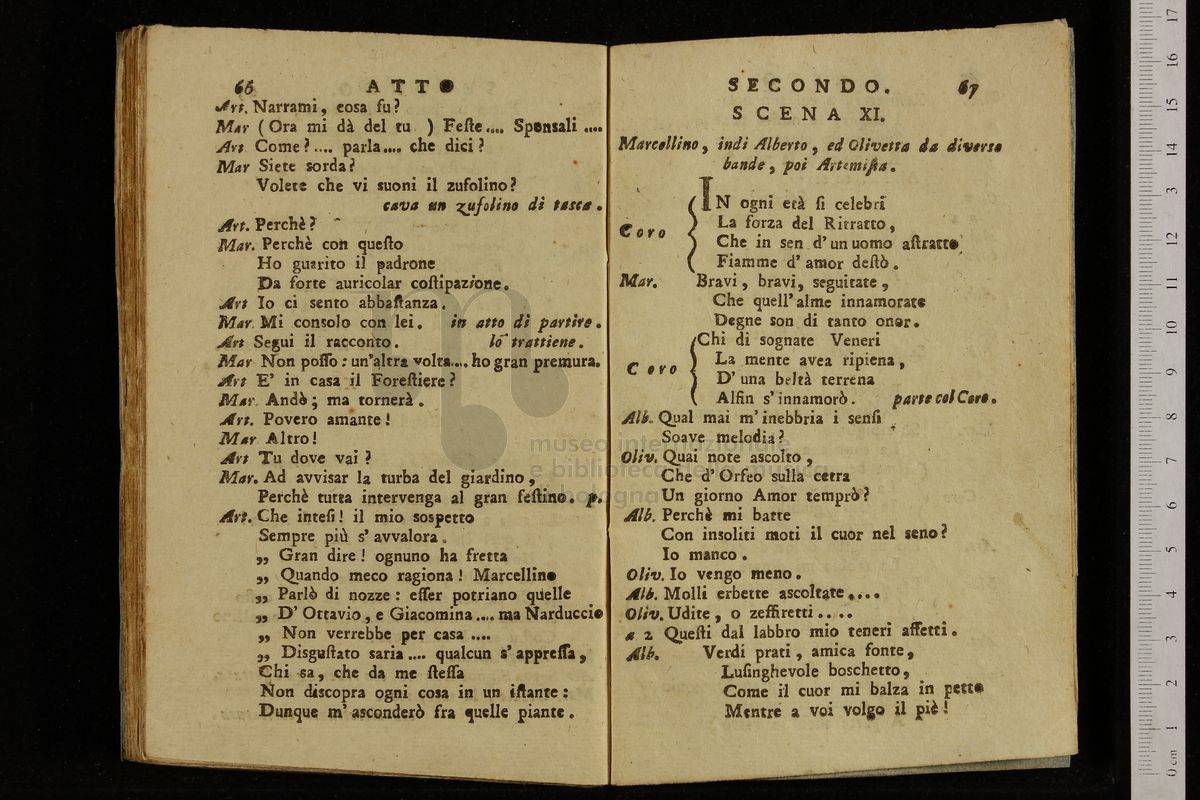 66 ATTO
Art. Narrami, cosa fu?
Mar (Ora mi dà del tu ) Feſte.... Sponsali ....
Art Come?.... parla.... che dici?
Mar Siete sorda?
Volete che vi suoni il zufolino?
cava un zufolino di tasca.
Art. Perchè?
Mar. Perchè con queſto
Ho guarito il padrone
Da forte auricolar coſtipazione.
Art Io ci sento abbaſtanza.
Mar. Mi consolo con lei. in atto di partire.
Art Segui il racconto. lo trattiene.
Mar Non poſſo: un'altra volta.... ho gran premura.
Art E' in casa il Foreſtiere?
Mar. Andò; ma tornerà.
Art. Povero amante!
Mar Altro!
Art Tu dove vai?
Mar. Ad avvisar la turba del giardino,
Perchè tutta intervenga al gran feſtino. p.
Art. Che inteſi! il mio sospetto
Sempre più s' avvalora.
„ Gran dire! ognuno ha fretta
„ Quando meco ragiona! Marcellino
„ Parlò di nozze: eſſer potriano quelle
„ D' Ottavio, e Giacomina.... ma Narduccio
„ Non verrebbe per casa ....
„ Disguſtato saria.... qualcun s' appreſſa,
Chi sa, che da me ſteſſa
Non discopra ogni cosa in un iſtante:
Dunque m' asconderò fra quelle piante.
SECONDO. 67
SCENA XI.
Marcellino, indi Alberto, ed Olivetta da diverse
bande, poi Artemiſia.
Coro
IN ogni età ſi celebri
La forza del Ritratto,
Che in sen d' un uomo aſtratto
Fiamme d' amor deſtò.
Mar. Bravi, bravi, seguitate,
Che quell' alme innamorate
Degne son di tanto onor.
Coro
Chi di sognate Veneri
La mente avea ripiena,
D' una beltà terrena
Alfin s' innamorò. parte col Coro.
Alb. Qual mai m' inebbria i senſi
Soave melodia?
Oliv. Quai note ascolto,
Che d' Orfeo sulla cetra
Un giorno Amor temprò?
Alb. Perchè mi batte
Con insoliti moti il cuor nel seno?
Io manco.
Oliv. Io vengo meno.
Alb. Molli erbette ascoltate....
Oliv. Udite, o zeffiretti....
a 2 Queſti dal labbro mio teneri affetti.
Alb. Verdi prati, amica fonte,
Luſinghevole boschetto,
Come il cuor mi balza in petto
Mentre a voi volgo il piè!
museo internazionale
e biblioteca della musica
bologna
0 cm 1 2 3 4 5 6 7 8 9 10 11 12 13 14 15 16 17